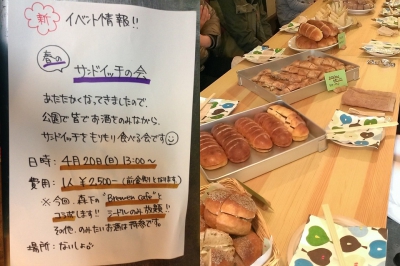 新 イベント情報!!
春の
サンドイッチの会
あたたかくなってきましたので、
公園で皆でお酒をのみながら、
サンドイッチをもりもり食べる会です
日時: 4月20日(日) 13:00〜
費用: 1人 ¥2,500-(前金制となります)
※ 今回、森下の"Brewen cafe"と
コラボします!! ミードルのみ放題!!
その他、のみたいお酒は持参でね
場所: ないしょ